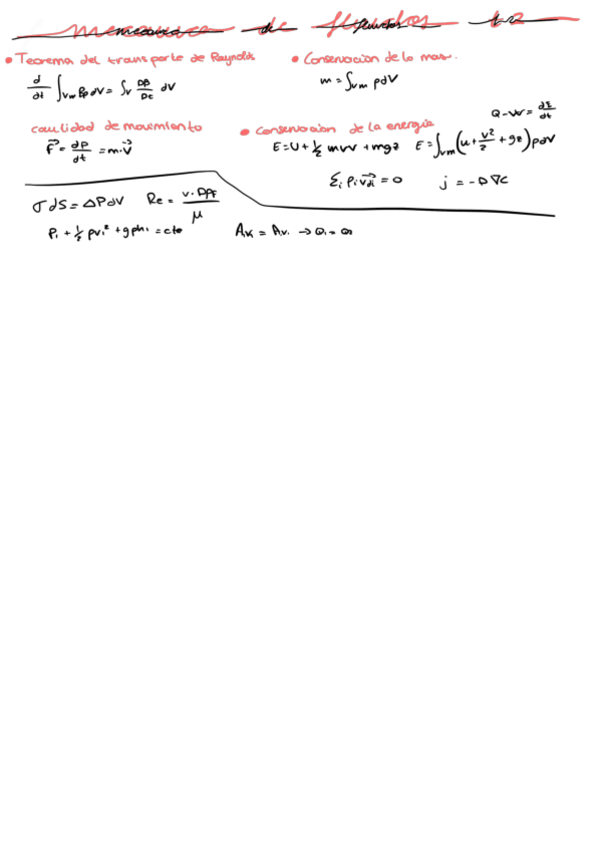 mecanica de fluidos t2
• Teorema del transporte de Reynolds
d/dt ∫vm βρdV = ∫v Dβ/Dt dV
• Conservacion de la mas.
m = ∫vm ρdV
Q-W = dE/dt
cantidad de movimiento
F = dp/dt = m·V
• Conservacion de la energia
E = U + ½ mvv + mgz E = ∫vm (u + v²/2 + gz) ρdV
Σi ρi vdi = 0 j = -D ∇C
σ dS = ΔP dV Re = v·Dρ/μ
Pi + ½ ρvi² + gρhi = cte